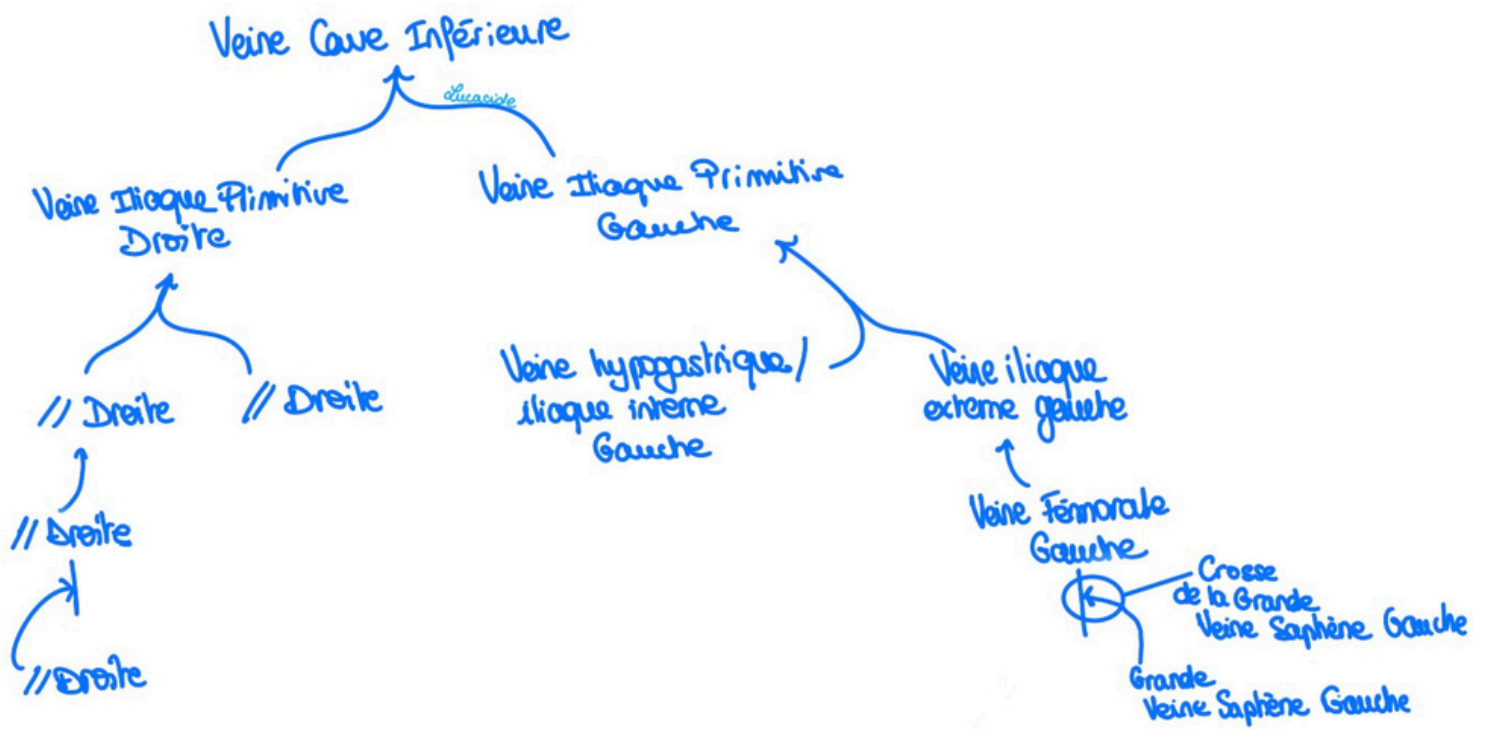 Veine Cave Inférieure
Lucaside
Veine Iliaque Primitive
Droite
Veine Iliaque Primitive
Gauche
// Droite
// Droite
Veine hypogastrique/
iliaque interne
Gauche
Veine iliaque
externe gauche
// Droite
Veine Fémorale
Gauche
Crosse
de la Grande
Veine Saphène Gauche
// Droite
Grande
Veine Saphène Gauche